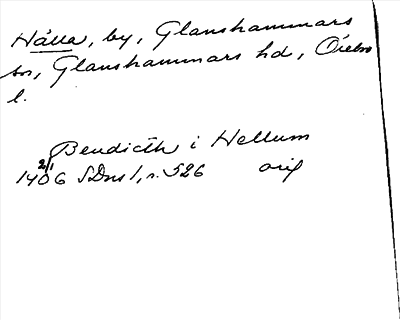 Hälla, by, Glanshammars
sn, Glanshammars hd, Örebro
l.
Bendicth i Hellum
1406 2/1 SDns 1, s. 526 orig